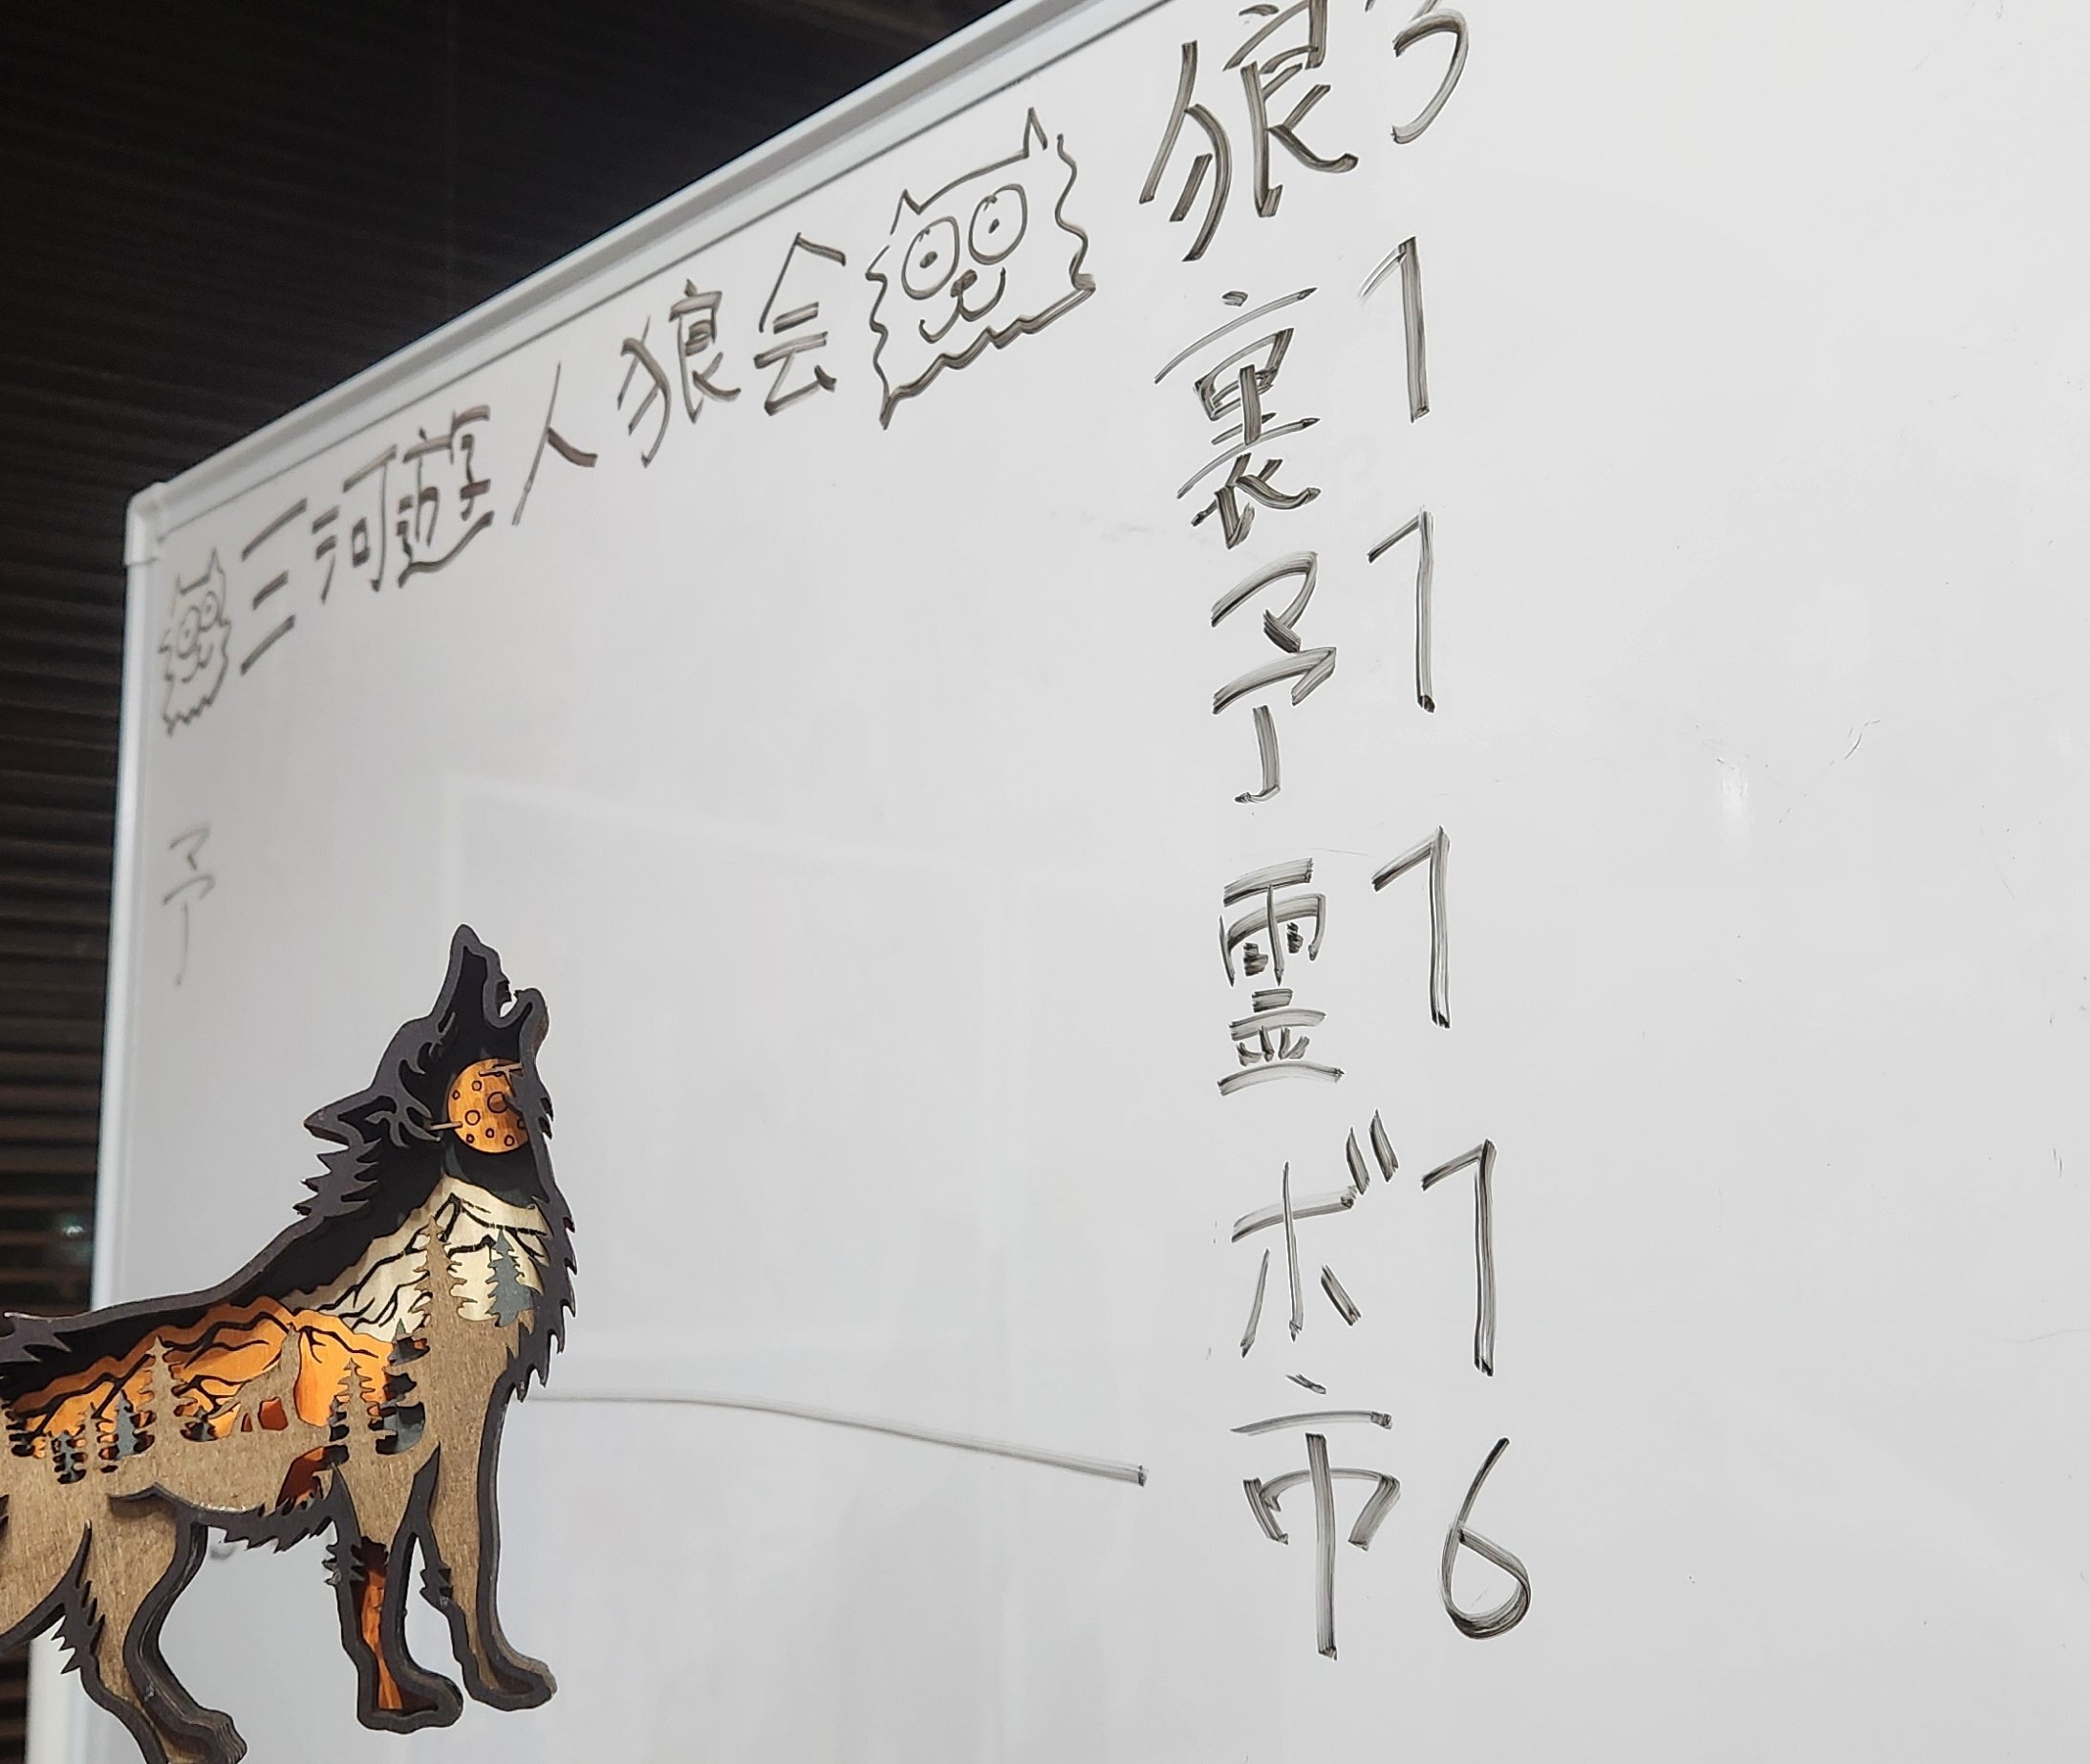 三河遊人狼会
予
狼3
裏1
予1
霊1
ボ1
市6